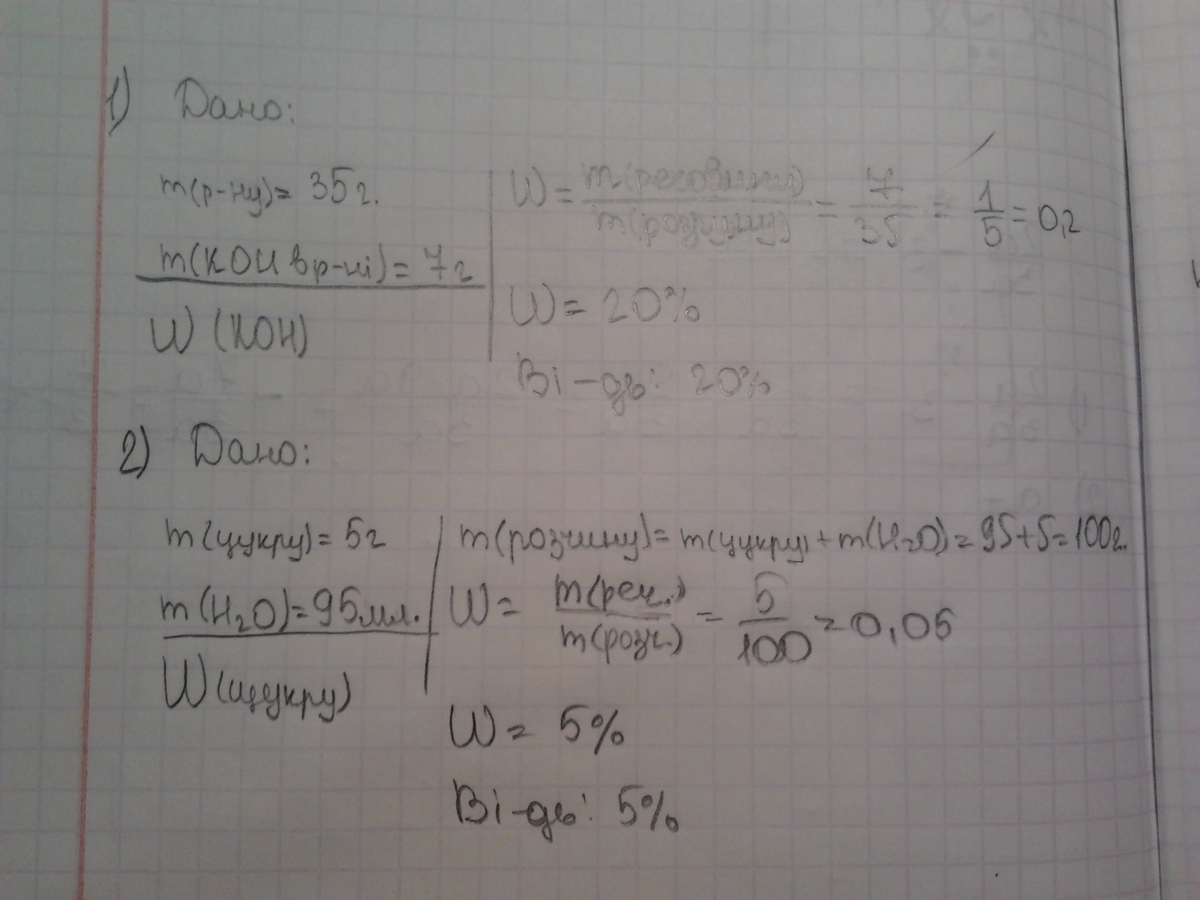 1) Дано:
m(р-ну)= 35г.
m(KOH в р-ні)= 7г
W (KOH)
W = m(речовини)/m(розчину) = 7/35 = 1/5 = 0,2
W = 20%
Ві-дь: 20%
2) Дано:
m(цукру)= 5г
m(H₂O)= 95мл.
W(цукру)
m(розчину)= m(цукру) + m(H₂O)= 95+5=100г.
W = m(реч.)/m(розч.) = 5/100 = 0,05
W = 5%
Ві-дь: 5%